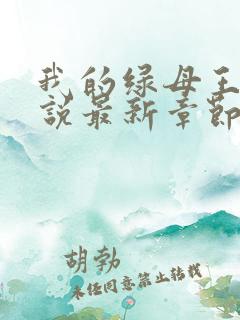 我的绿母王
说最新章节
胡勃
未经同意禁止转载